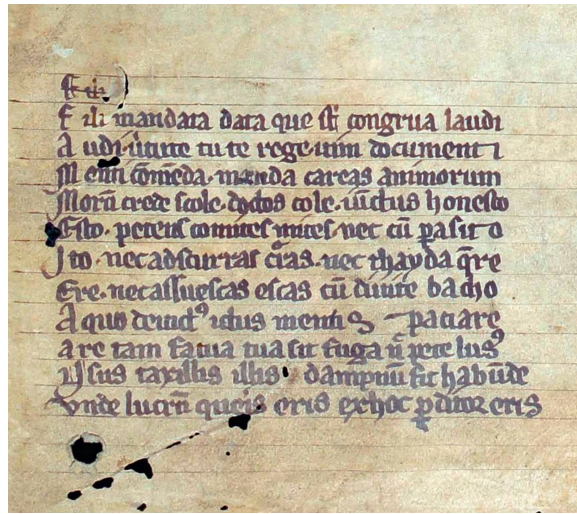 F ili
F ili mandata data que sūt congrua laudi
A udi ūtute tu te rege utim document i
M enti cōmēda menda careas animorum
Morū crede scole doctos cole uictus honesto
Esto petens comites mites nec cū pasito
I to nec ad scurras cras nec thayda qrere
Ere nec assuescas escas cū diuite bacho
A quo deuictꝰ ictus mentis patiare
are tam fatua tua sit fuga n pete lusꝰ
usus taxillis illis dampnū fit habūde
vnde lucrū queris eris ex hoc pditor eris